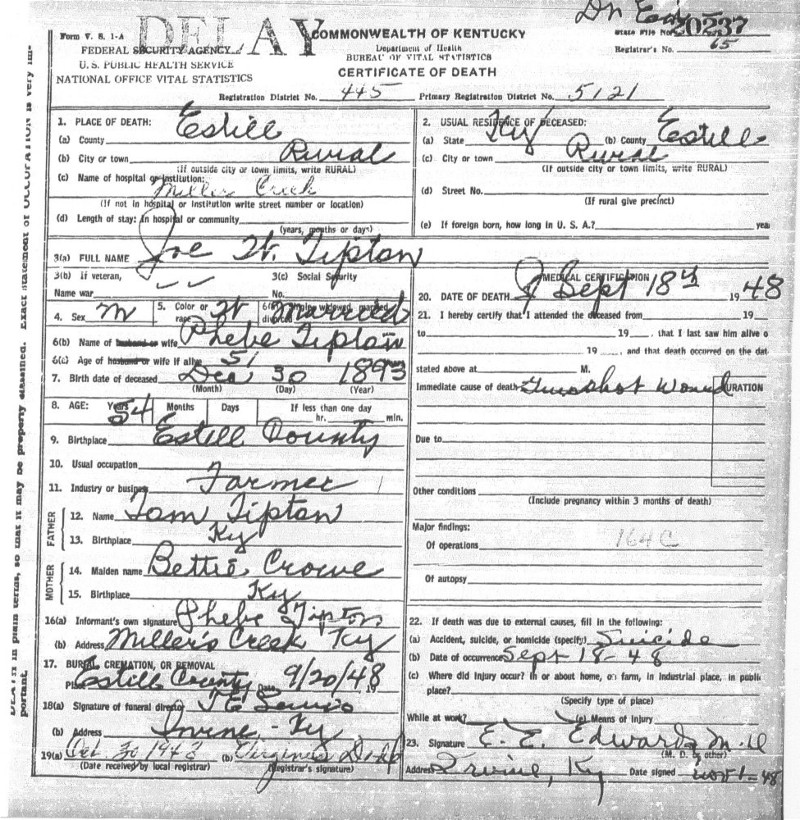 Dr E
DELAY
Form V. S. 1-A
FEDERAL SECURITY AGENCY
U. S. PUBLIC HEALTH SERVICE
NATIONAL OFFICE VITAL STATISTICS
COMMONWEALTH OF KENTUCKY
Department of Health
BUREAU OF VITAL STATISTICS
CERTIFICATE OF DEATH
State File No. 20237
Registrar's No. 65
Registration District No. 445 Primary Registration District No. 5121
DEATH in plain terms, so that it may be properly classified. Exact statement of OCCUPATION is very im-
portant.
1. PLACE OF DEATH:
(a) County Estill
(b) City or town Rural
(If outside city or town limits, write RURAL)
(c) Name of hospital or institution:
Millers Creek
(If not in hospital or institution write street number or location)
(d) Length of stay: In hospital or community
(years, months or days)
2. USUAL RESIDENCE OF DECEASED:
(a) State Ky (b) County Estill
(c) City or town Rural
(If outside city or town limits, write RURAL)
(d) Street No.
(If rural give precinct)
(e) If foreign born, how long in U. S. A.? yea
3(a) FULL NAME Joe W. Tipton
3(b) If veteran,
Name war
3(c) Social Security
No.
4. Sex M 5. Color or race W 6(a) Single, widowed, married, divorced Married
6(b) Name of husband or wife Phebe Tipton
6(c) Age of husband or wife if alive 51
7. Birth date of deceased Dec 30 1893
(Month) (Day) (Year)
8. AGE: Years 54 Months Days If less than one day
hr. min.
9. Birthplace Estill County
10. Usual occupation
11. Industry or business Farmer
FATHER
12. Name Tom Tipton
13. Birthplace Ky
MOTHER
14. Maiden name Bettie Crowe
15. Birthplace Ky
16(a) Informant's own signature Phebe Tipton
(b) Address Miller's Creek Ky
17. BURIAL, CREMATION, OR REMOVAL
Place Estill County Date 9/20/48 19
18(a) Signature of funeral director T E Lewis
(b) Address Irvine - Ky
19(a) Oct 30 1948 (b) Virginia
(Date received by local registrar) (Registrar's signature)
MEDICAL CERTIFICATION
20. DATE OF DEATH Sept 18 1948
21. I hereby certify that I attended the deceased from 19
to 19 , that I last saw him alive o
19 , and that death occurred on the dat
stated above at M.
Immediate cause of death Gunshot Wound DURATION
Due to
Other conditions
(Include pregnancy within 3 months of death)
Major findings:
Of operations 164C
Of autopsy
22. If death was due to external causes, fill in the following:
(a) Accident, suicide, or homicide (specify) Suicide
(b) Date of occurrence Sept 18-48
(c) Where did injury occur? In or about home, on farm, in industrial place, in public
place?
(Specify type of place)
While at work? (e) Means of Injury
23. Signature E. E. Edwards M. D
(M. D. or other)
Address Irvine, Ky Date signed Nov 1-48